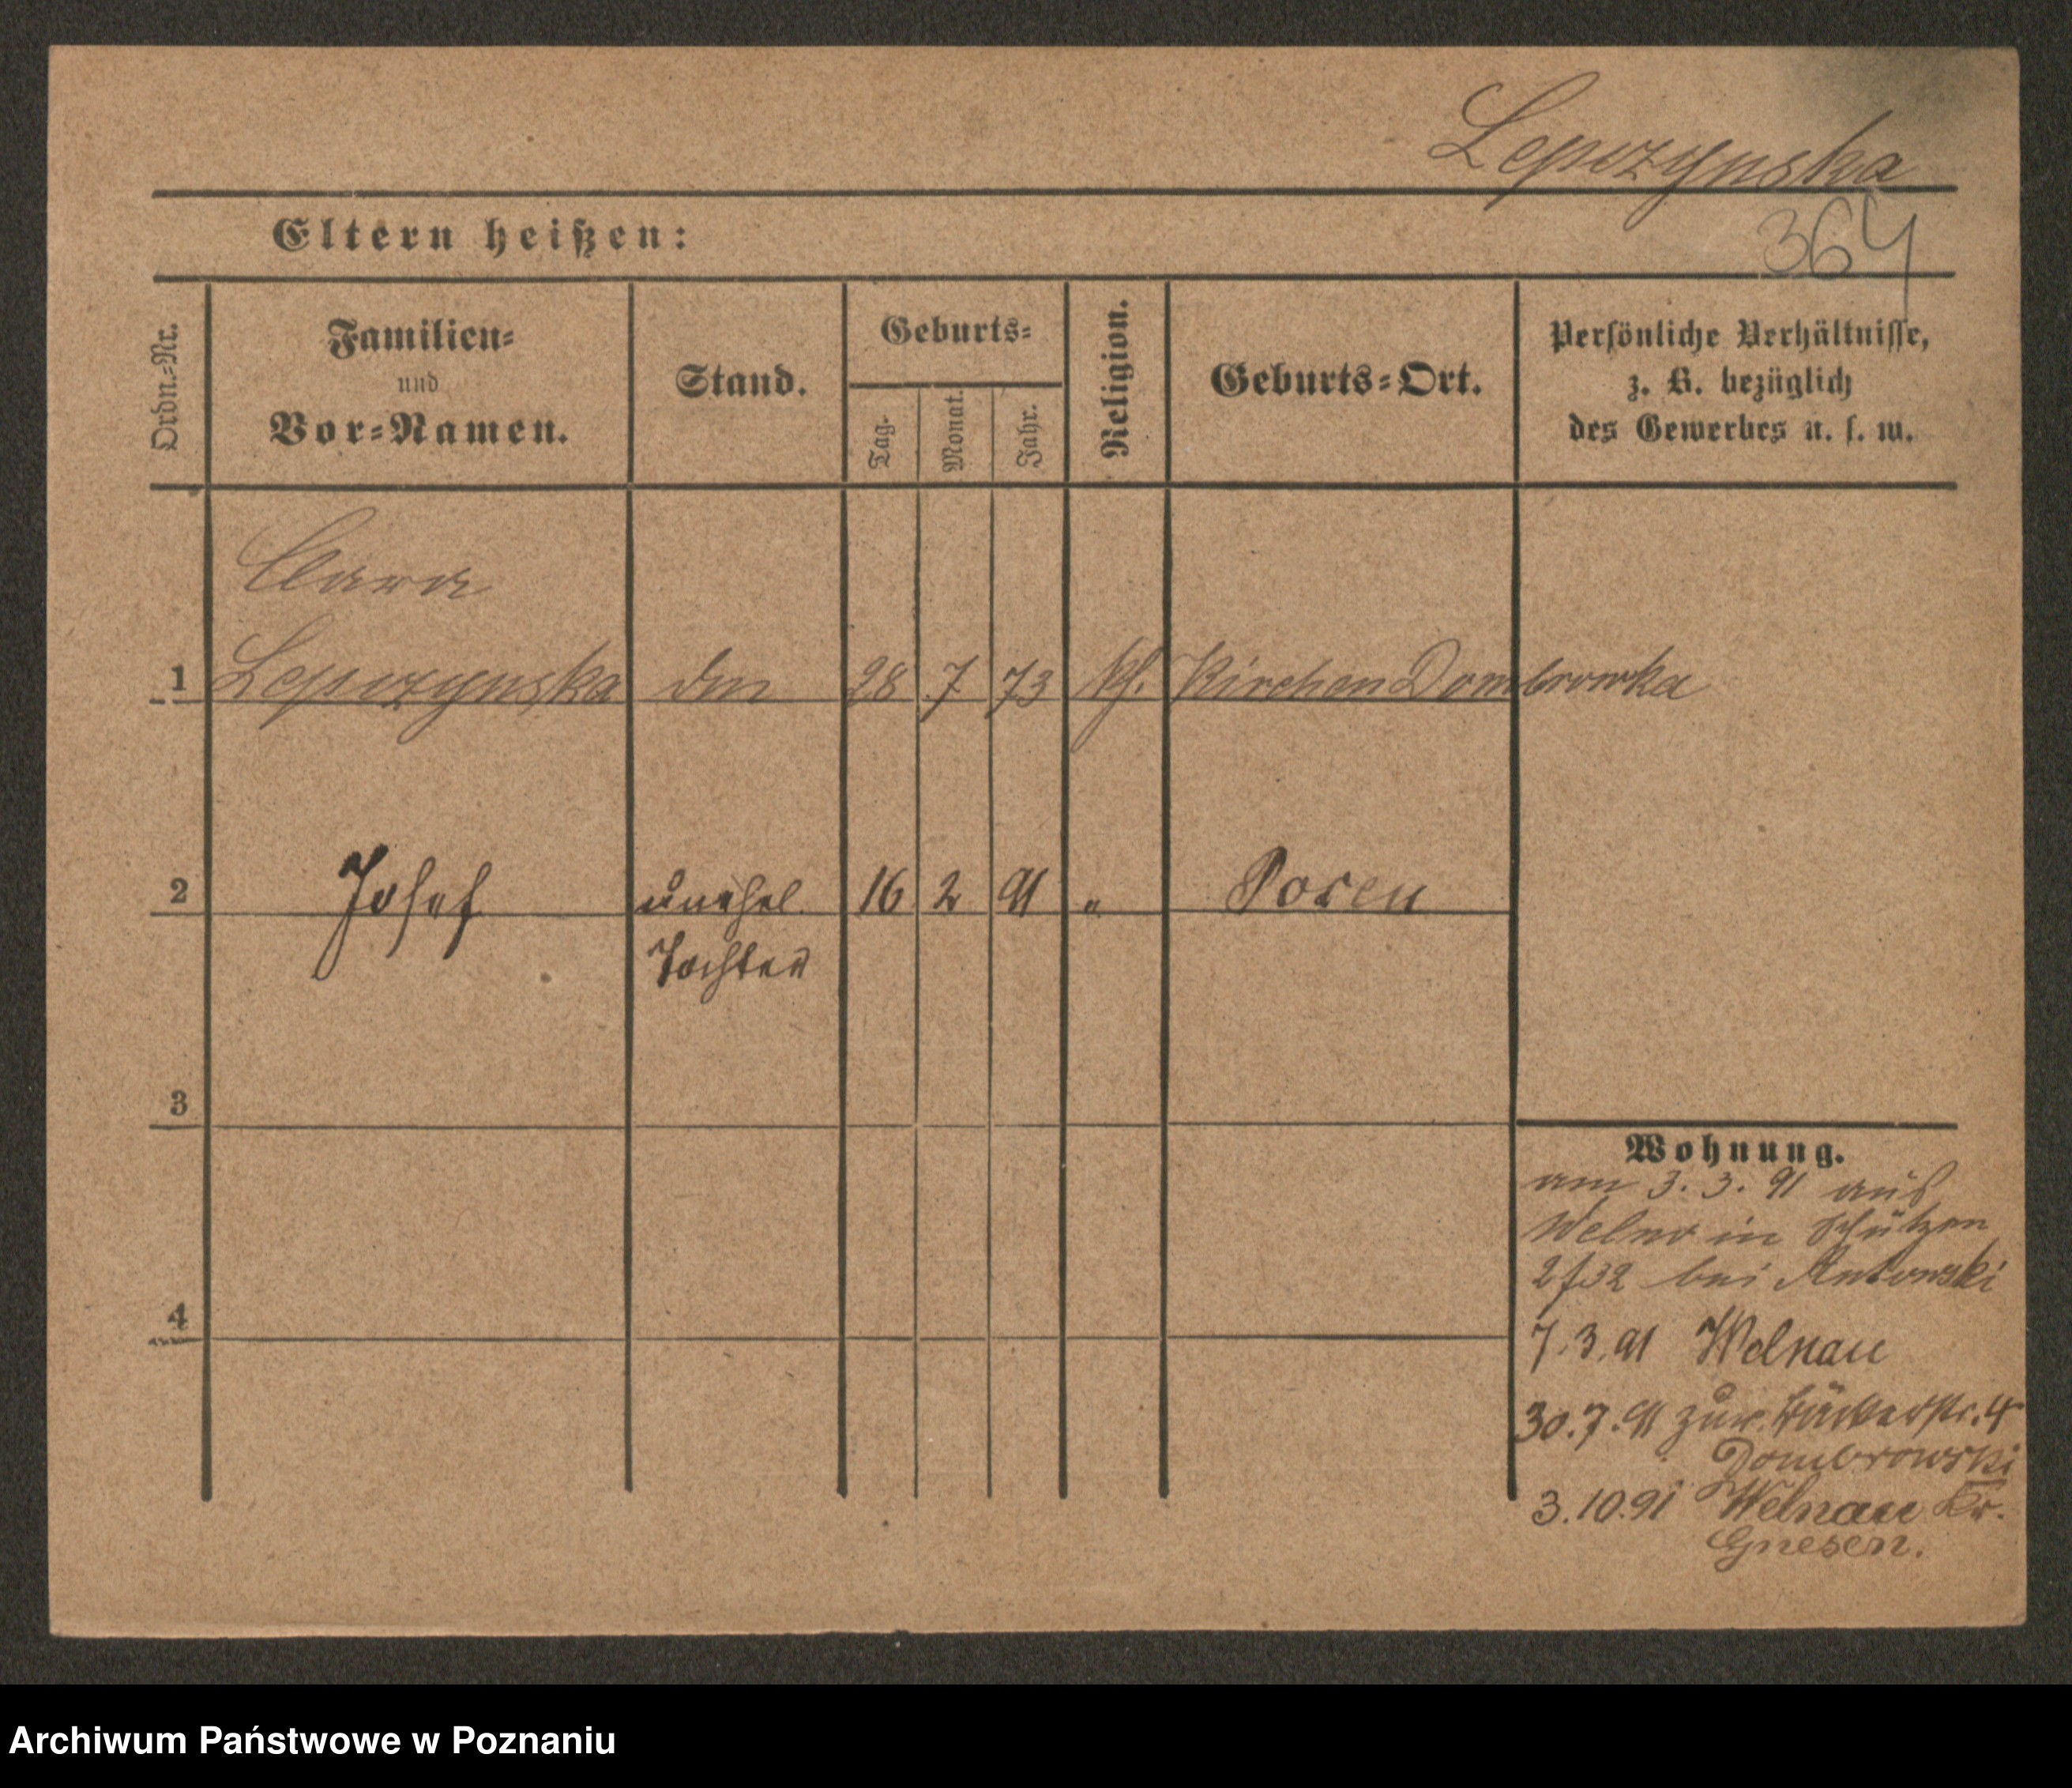 Lepczynska
Eltern heißen:
364
Ordn.-Nr.
Familien-
und
Vor-Namen.
Stand.
Geburts-
Tag.
Monat.
Jahr.
Religion.
Geburts-Ort.
Persönliche Verhältnisse,
z. B. bezüglich
des Gewerbes u. s. w.
Clara
1 Lepczynska 28 7 73 kh. Kirchen Dombrowka
2 Josef unehel. 16 2 91 " Posen
Tochter
3
Wohnung.
am 3. 3. 91 aus
Welna in Schützen
bei Antowski
4
7.3.91 Welnau
30.7.91 zur. Bäckerstr. 4
Dombrowski
3.10.91 Welnau Kr.
Gnesen.
Archiwum Państwowe w Poznaniu